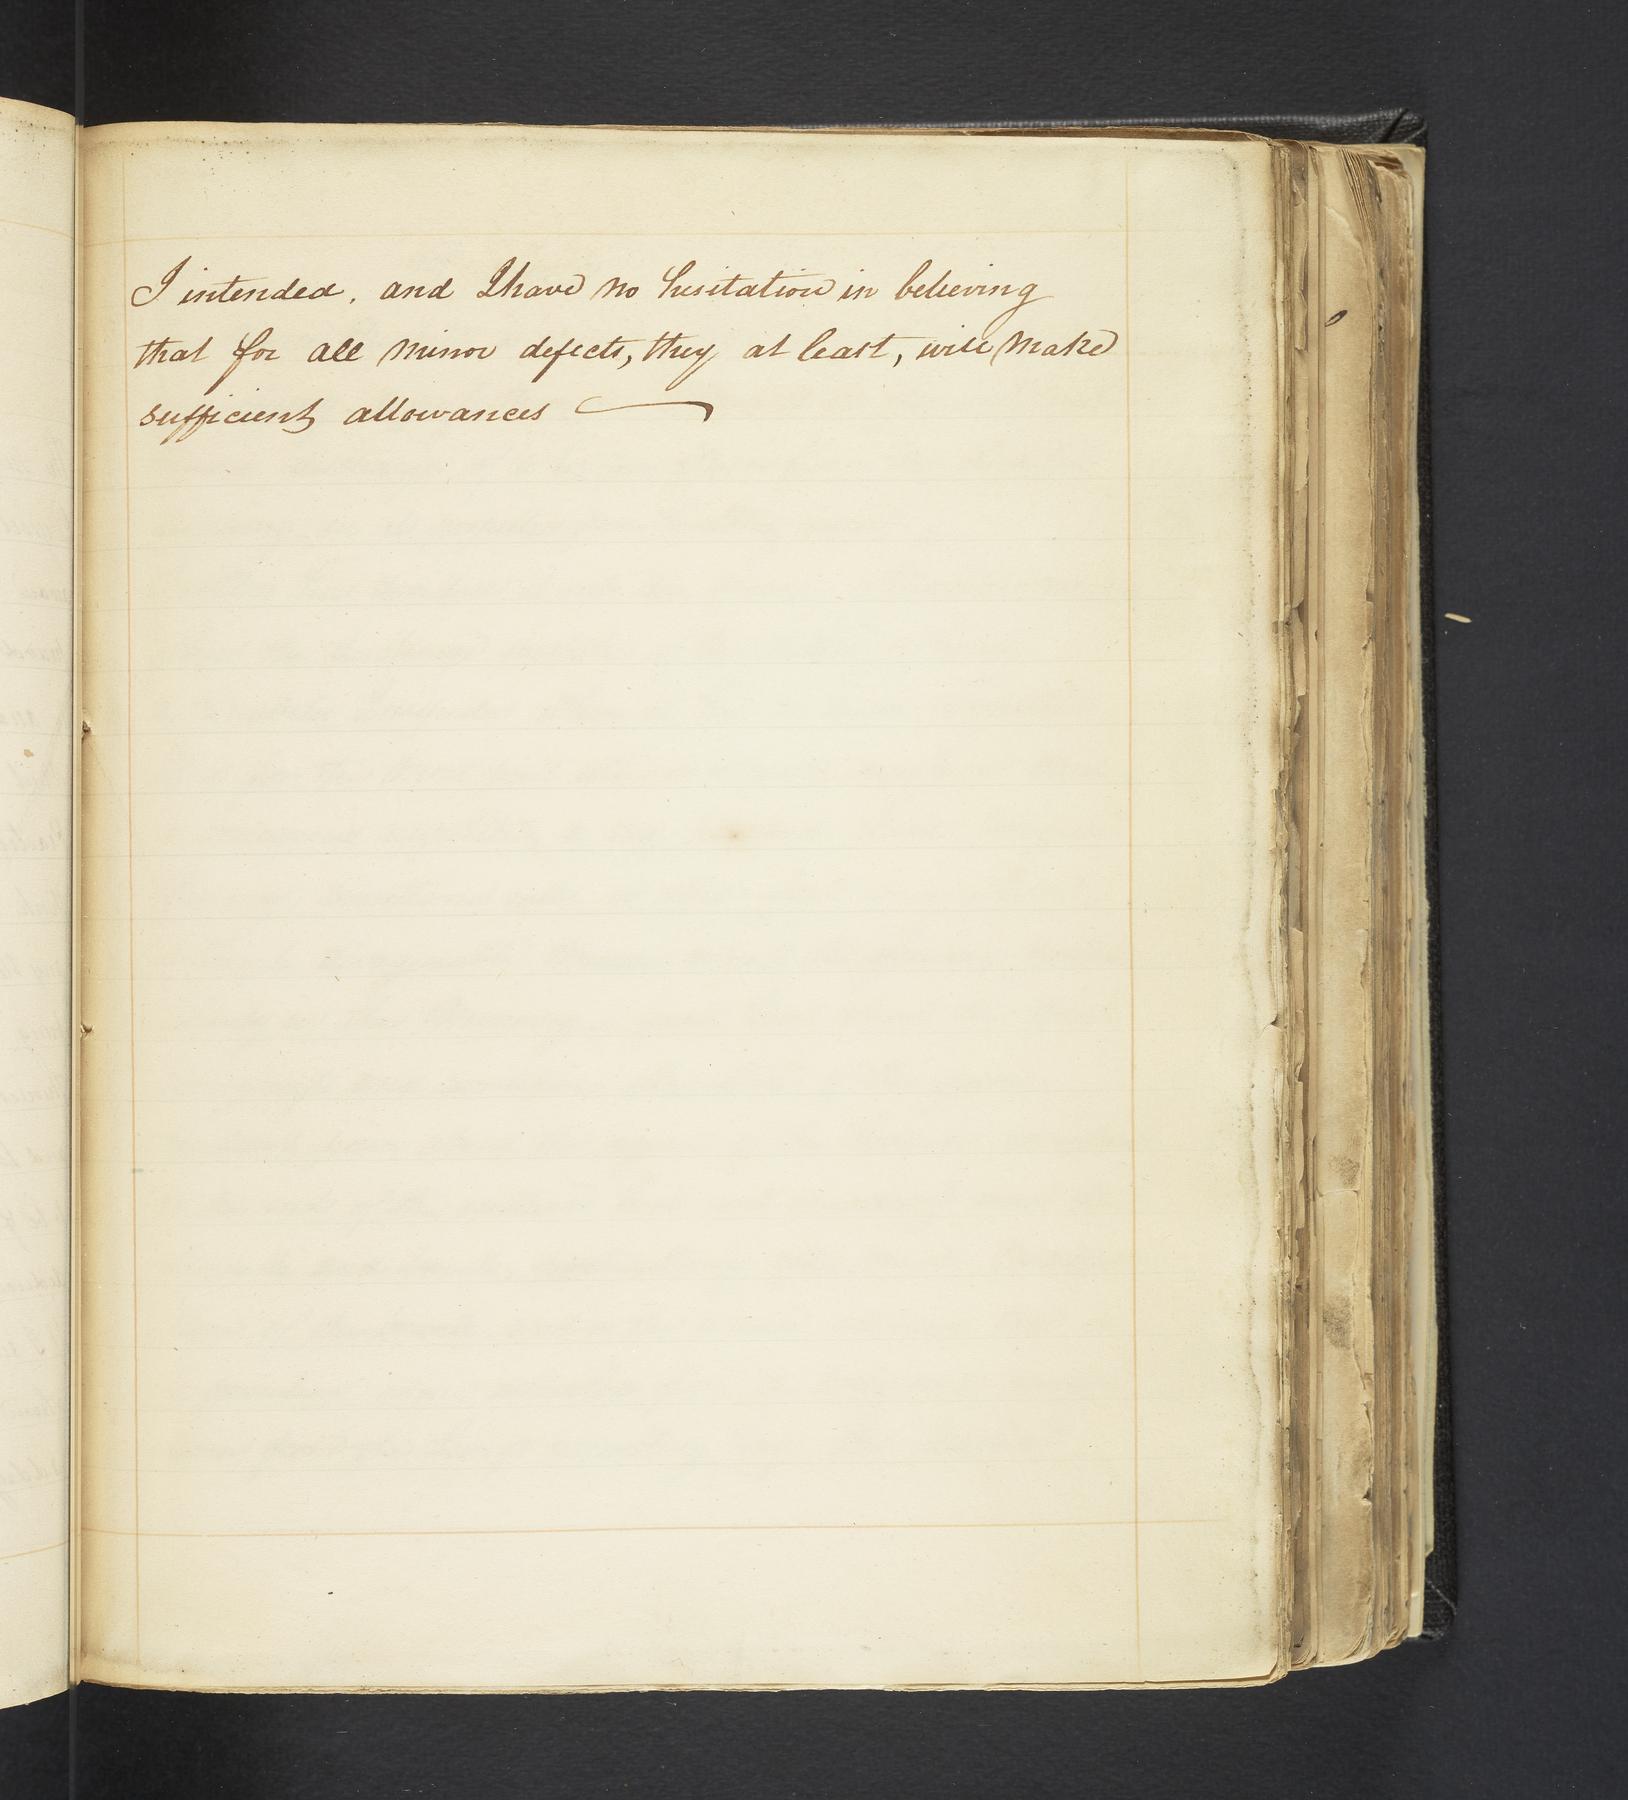 I intended, and I have no hesitation in believing
that for all minor defects, they at least, will make
sufficient allowances